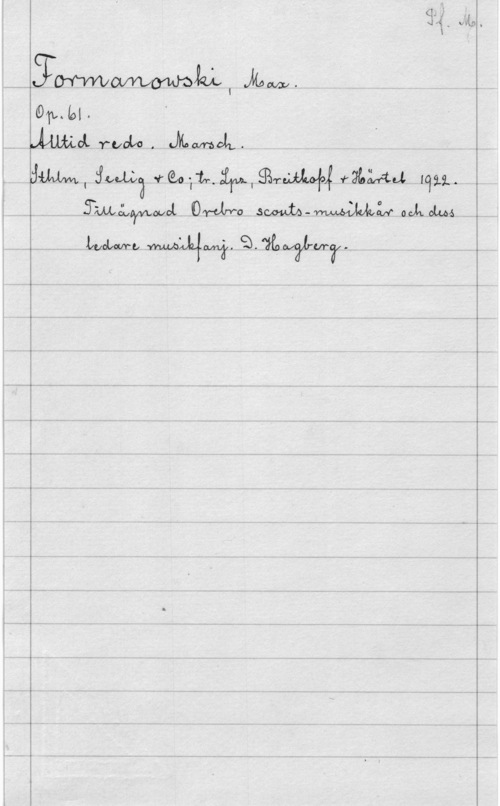 Pf. Mg.
Formanowski, Max.
Op. 61.
Alltid redo. Marsch.
Sthlm, Seelig & Co; tr. Lpz, Breitkopf & Härtel 1922.
Tillägnad Örebro scouts-musikkår och dess
ledare musikfanj. D. Hagberg.